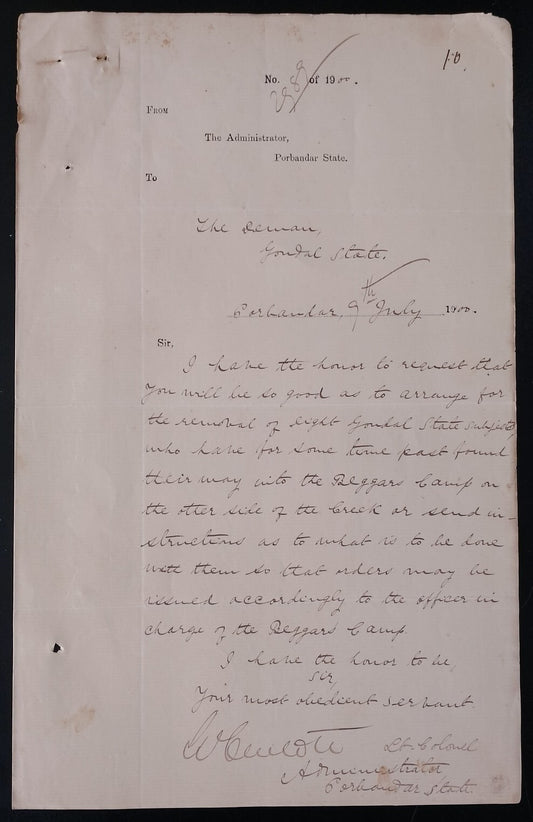 10
No. 289 of 1900.
FROM
The Administrator,
Porbandar State.
To
The Dewan,
Gondal State.
Porbandar, 9th July 1900.
Sir,
I have the honor to request that
you will be so good as to arrange for
the removal of eight Gondal State subjects,
who have for some time past found
their way into the Beggars Camp on
the other side of the Creek or send in-
structions as to what is to be done
with them so that orders may be
issued accordingly to the officer in
charge of the Beggars Camp.
I have the honor to be,
Sir,
Your most obedient servant
Lt-Colonel
Administrator
Porbandar State.